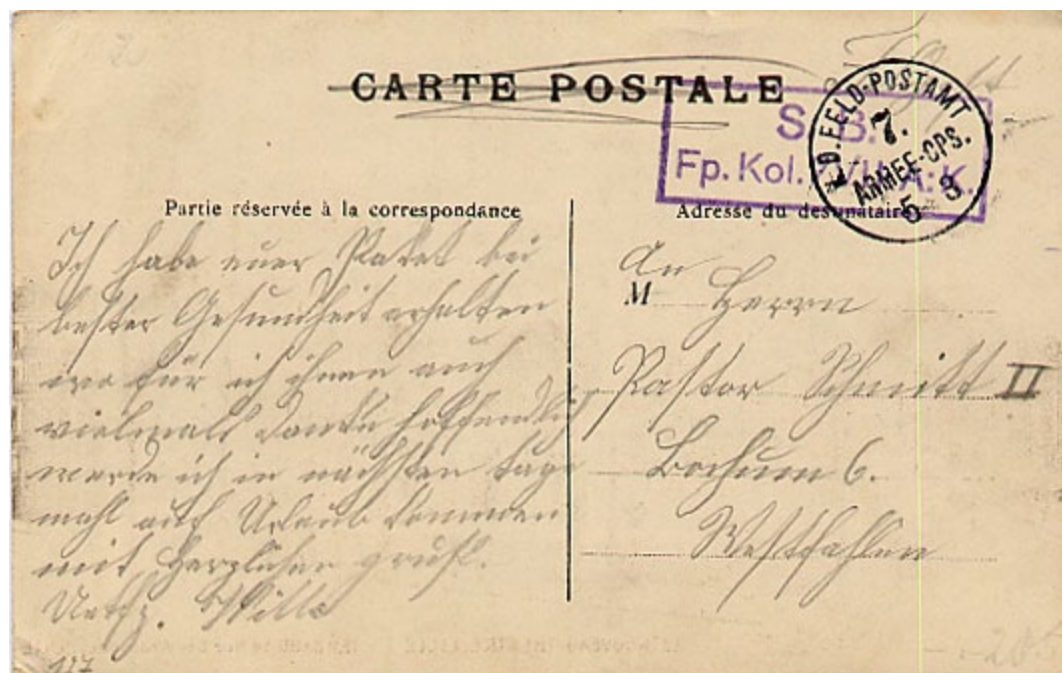 CARTE POSTALE
S. B.
Fp. Kol. VII. A. K.
K.D. FELD-POSTAMT
7.
ARMEE-CPS.
5 3
Partie réservée à la correspondance
Adresse du destinataire
Ich habe euer Paket bei
bester Gesundheit erhalten
wo für ich ihnen auch
vielmals danke hoffendlich
werde ich in nächsten tage
mahl auf Urlaub kommen
mit Herzlichen gruß.
Wille
An
M Herrn
Pastor Schmitt II
Bochum 6.
Westfahlen
117